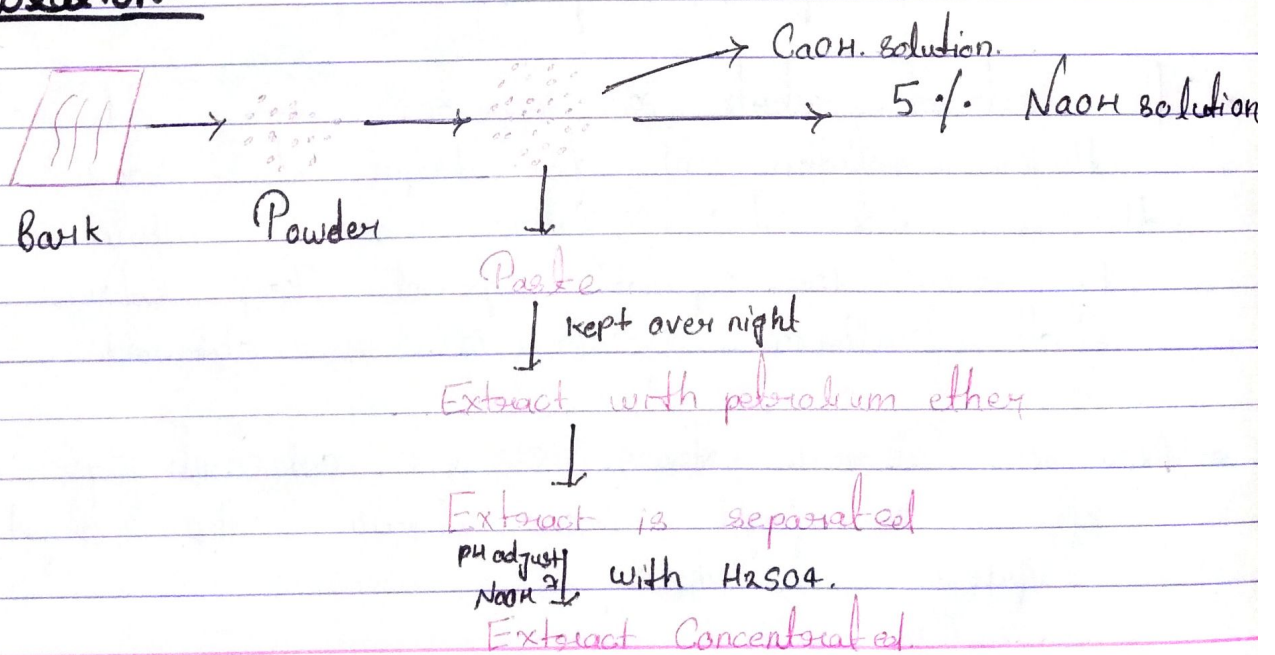 CaOH. solution.
5 %. NaOH solution
Bark Powder
Paste
kept over night
Extract with petroleum ether
Extract is separated
pH adjust with H2SO4.
NaOH 7
Extract Concentrated.